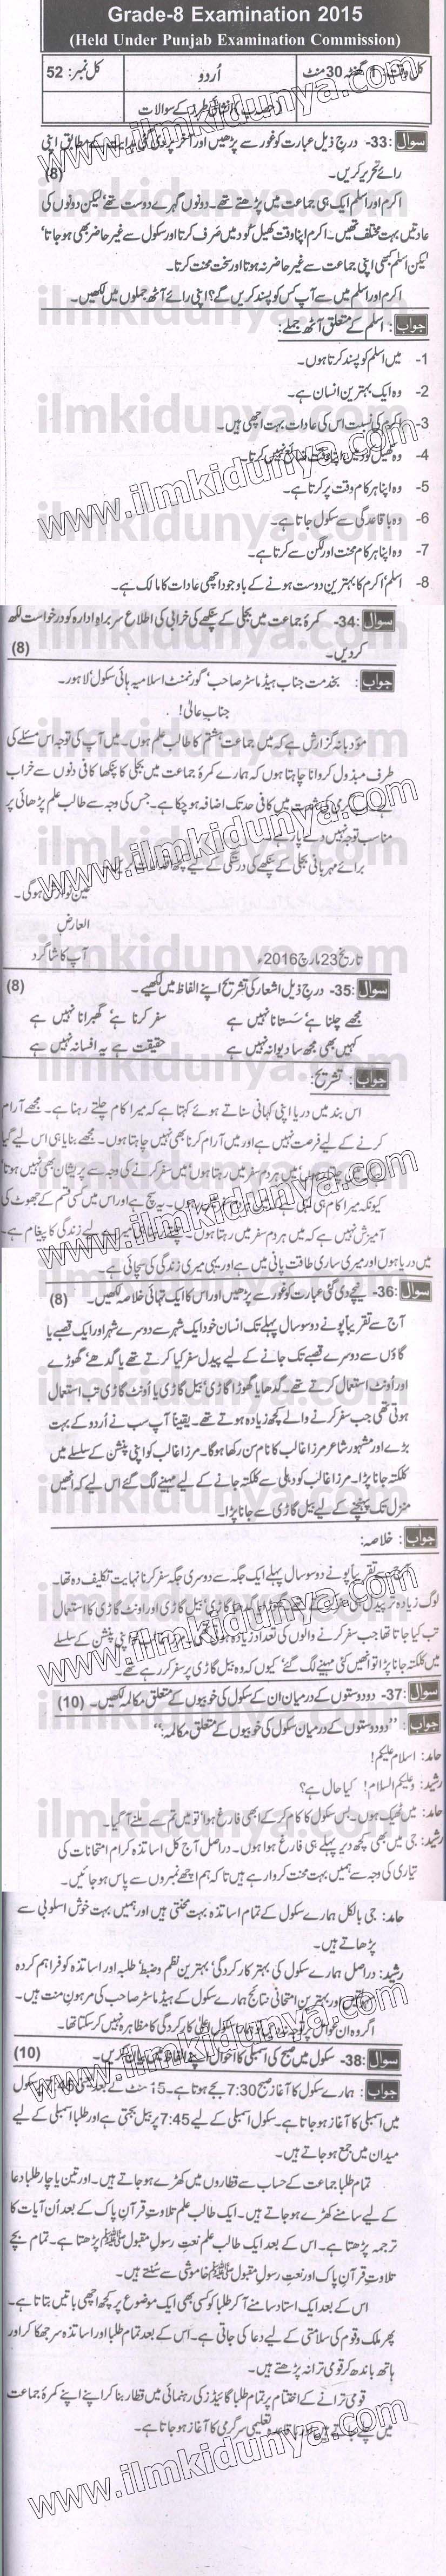 Grade-8 Examination 2015
(Held Under Punjab Examination Commission)
کل وقت: 1 گھنٹہ 30 منٹ اُردو کل نمبر: 52
انشائی طرز کے سوالات
سوال :33- درج ذیل عبارت کو غور سے پڑھیں اور آخر پر دی گئی ہدایت کے مطابق اپنی
رائے تحریر کریں۔ (8)
اکرم اور اسلم ایک ہی جماعت میں پڑھتے تھے۔ دونوں گہرے دوست تھے لیکن دونوں کی
عادتیں بہت مختلف تھیں۔ اکرم اپنا وقت کھیل کود میں صَرف کرتا اور سکول سے غیر حاضر بھی ہو جاتا‘
لیکن اسلم کبھی اپنی جماعت سے غیر حاضر نہ ہوتا اور سخت محنت کرتا۔
اکرم اور اسلم میں سے آپ کس کو پسند کریں گے؟ اپنی رائے آٹھ جملوں میں لکھیں۔
جواب : اسلم کے متعلق آٹھ جملے:
1- میں اسلم کو پسند کرتا ہوں۔
2- وہ ایک بہترین انسان ہے۔
3- اکرم کی نسبت اس کی عادات بہت اچھی ہیں۔
4- وہ کھیل کود میں اپنا وقت ضائع نہیں کرتا۔
5- وہ اپنا ہر کام وقت پر کرتا ہے۔
6- وہ باقاعدگی سے سکول جاتا ہے۔
7- وہ اپنا ہر کام محنت اور لگن سے کرتا ہے۔
8- اسلم‘ اکرم کا بہترین دوست ہونے کے باوجود اچھی عادات کا مالک ہے۔
سوال :34- کمرۂ جماعت میں بجلی کے پنکھے کی خرابی کی اطلاع سربراہِ ادارہ کو درخواست لکھ
کر دیں۔ (8)
جواب : بخدمت جناب ہیڈ ماسٹر صاحب‘ گورنمنٹ اسلامیہ ہائی سکول‘ لاہور۔
جنابِ عالی!
مؤدبانہ گزارش ہے کہ میں جماعت ہشتم کا طالب علم ہوں۔ میں آپ کی توجہ اس مسئلے کی
طرف مبذول کروانا چاہتا ہوں کہ ہمارے کمرۂ جماعت میں بجلی کا پنکھا کافی دنوں سے خراب
میں کافی حد تک اضافہ ہو چکا ہے۔ جس کی وجہ سے طالب علم پڑھائی پر
مناسب توجہ نہیں دے پا رہے۔
برائے مہربانی بجلی کے پنکھے کی درستگی کے لیے
عین نوازش ہوگی۔
العارض
تاریخ 23 مارچ 2016ء آپ کا شاگرد
سوال :35- درج ذیل اشعار کی تشریح اپنے الفاظ میں لکھیے۔ (8)
مجھے چلنا ہے‘ سَستانا نہیں ہے سفر کرنا ہے‘ گھبرانا نہیں ہے
کہیں بھی مجھ سا دیوانہ نہیں ہے حقیقت ہے یہ افسانہ نہیں ہے
جواب : تشریح:
اس بند میں دریا اپنی کہانی سناتے ہوئے کہتا ہے کہ میرا کام چلتے رہنا ہے۔ مجھے آرام
کرنے کے لیے فرصت نہیں ہے اور میں آرام کرنا بھی نہیں چاہتا ہوں۔ مجھے بنایا ہی اس لیے گیا
میں ہر دم سفر میں رہتا ہوں‘ میں سفر کرنے کی وجہ سے پریشان بھی نہیں ہوتا‘
کیونکہ میرا کام ہی یہ سچ ہے اور اس میں کسی قسم کے جھوٹ کی
آمیزش نہیں ہے کہ میں ہر دم سفر میں رہتا ہوں۔ لیے زندگی کا پیغام ہے۔
میں دریا ہوں اور میری ساری طاقت پانی میں ہے اور یہی میری زندگی کی سچائی ہے۔
سوال :36- نیچے دی گئی عبارت کو غور سے پڑھیں اور اس کا ایک تہائی خلاصہ لکھیں۔ (8)
آج سے تقریباً پونے دو سو سال پہلے تک انسان خود ایک شہر سے دوسرے شہر اور ایک قصبے یا
گاؤں سے دوسرے قصبے تک جانے کے لیے پیدل سفر کیا کرتے تھے یا گدھے‘ گھوڑے
اور اُونٹ استعمال کرتے تھے۔ گدھا یا گھوڑا گاڑی‘ بیل گاڑی یا اُونٹ گاڑی تب استعمال
ہوتی تھی جب سفر کرنے والے کچھ زیادہ ہوتے تھے۔ یقیناً آپ سب نے اُردو کے بہت
بڑے اور مشہور شاعر مرزا غالب کا نام سن رکھا ہوگا۔ مرزا غالب کو اپنی پنشن کے سلسلے میں
کلکتہ جانا پڑا۔ مرزا غالب کو دہلی سے کلکتہ جانے کے لیے مہینے لگ گئے اس لیے کہ انھیں
منزل تک پہنچنے کے لیے بیل گاڑی سے جانا پڑا۔
جواب : خلاصہ:
آج سے تقریباً پونے دو سو سال پہلے ایک جگہ سے دوسری جگہ سفر کرنا نہایت تکلیف دہ تھا۔
لوگ زیادہ تر پیدل گاڑی‘ بیل گاڑی اور اونٹ گاڑی کا استعمال
تب کیا جاتا تھا جب سفر کرنے والوں کی تعداد زیادہ ہو اپنی پنشن کے سلسلے
میں کلکتہ جانا پڑا تو انھیں کئی مہینے لگ گئے‘ کیوں کہ وہ بیل گاڑی پر سفر کر رہے تھے۔
سوال :37- دو دوستوں کے درمیان ان کے سکول کی خوبیوں کے متعلق مکالمہ لکھیں۔ (10)
جواب : ’’دو دوستوں کے درمیان سکول کی خوبیوں کے متعلق مکالمہ:‘‘
حامد: اسلام علیکم!
رشید: وعلیکم السلام! کیا حال ہے؟
حامد: میں ٹھیک ہوں۔ بس سکول کا کام کر کے ابھی فارغ ہوا‘ تو میں تم سے ملنے آ گیا۔
رشید: جی میں بھی کچھ دیر پہلے ہی فارغ ہوا ہوں۔ دراصل آج کل اساتذہ کرام امتحانات کی
تیاری کی وجہ سے ہمیں بہت محنت کروا رہے ہیں تاکہ ہم اچھے نمبروں سے پاس ہو جائیں۔
حامد: جی بالکل ہمارے سکول کے تمام اساتذہ بہت محنتی ہیں اور ہمیں بہت خوش اسلوبی سے
پڑھاتے ہیں۔
رشید: دراصل ہمارے سکول کی بہتر کارکردگی‘ بہترین نظم و ضبط‘ طلبہ اور اساتذہ کو فراہم کردہ
اور بہترین امتحانی نتائج ہمارے سکول کے ہیڈ ماسٹر صاحب کی مرہونِ منت ہیں۔
اگر وہ ان عوامل پر توجہ نہ دیں تو ہمارا سکول اعلیٰ کارکردگی کا مظاہرہ نہیں کر سکتا تھا۔
سوال :38- سکول میں صبح کی اسمبلی کا احوال اپنے الفاظ میں بیان کریں۔ (10)
جواب : ہمارے سکول کا آغاز صبح 7:30 بجے ہوتا ہے۔ 15 منٹ کے بعد یعنی 7:45 پر سکول
میں اسمبلی کا آغاز ہو جاتا ہے۔ سکول اسمبلی کے لیے 7:45 پر بیل بجتی ہے اور طلبا اسمبلی کے لیے
میدان میں جمع ہو جاتے ہیں۔
تمام طلبا جماعت کے حساب سے قطاروں میں کھڑے ہو جاتے ہیں۔ اور تین یا چار طلبا دعا
کے لیے سامنے کھڑے ہو جاتے ہیں۔ ایک طالب علم تلاوتِ قرآنِ پاک کے بعد اُن آیات کا
ترجمہ پڑھتا ہے۔ اس کے بعد ایک طالب علم نعت رسولِ مقبول ﷺ پڑھتا ہے۔ تمام بچے
تلاوتِ قرآنِ پاک اور نعت رسولِ مقبول ﷺ خاموشی سے سُنتے ہیں۔
اس کے بعد ایک استاد سامنے آ کر طلبا کو کسی بھی ایک موضوع پر کچھ اچھی باتیں بتاتا ہے۔
پھر ملک و قوم کی سلامتی کے لیے دعا کی جاتی ہے۔ اس کے بعد تمام طلبا اور اساتذہ سر جھکا کر اور
ہاتھ باندھ کر قومی ترانہ پڑھتے ہیں۔
قومی ترانے کے اختتام پر تمام طلبا گائیڈز کی رہنمائی میں قطار بنا کر اپنے اپنے کمرۂ جماعت
میں چلے جاتے ہیں اور باقاعدہ تعلیمی سرگرمی کا آغاز ہو جاتا ہے۔
www.ilmkidunya.com